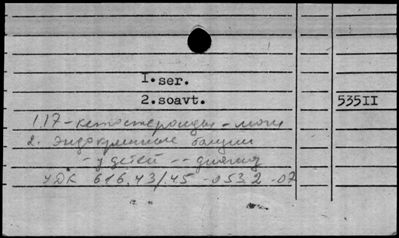 I.ser.
2.soavt.
535II
1.17-кетостероиды - моча
2. эндокринные
- у детей -- диагноз
УДК 616.43/.45 -053.2 -07